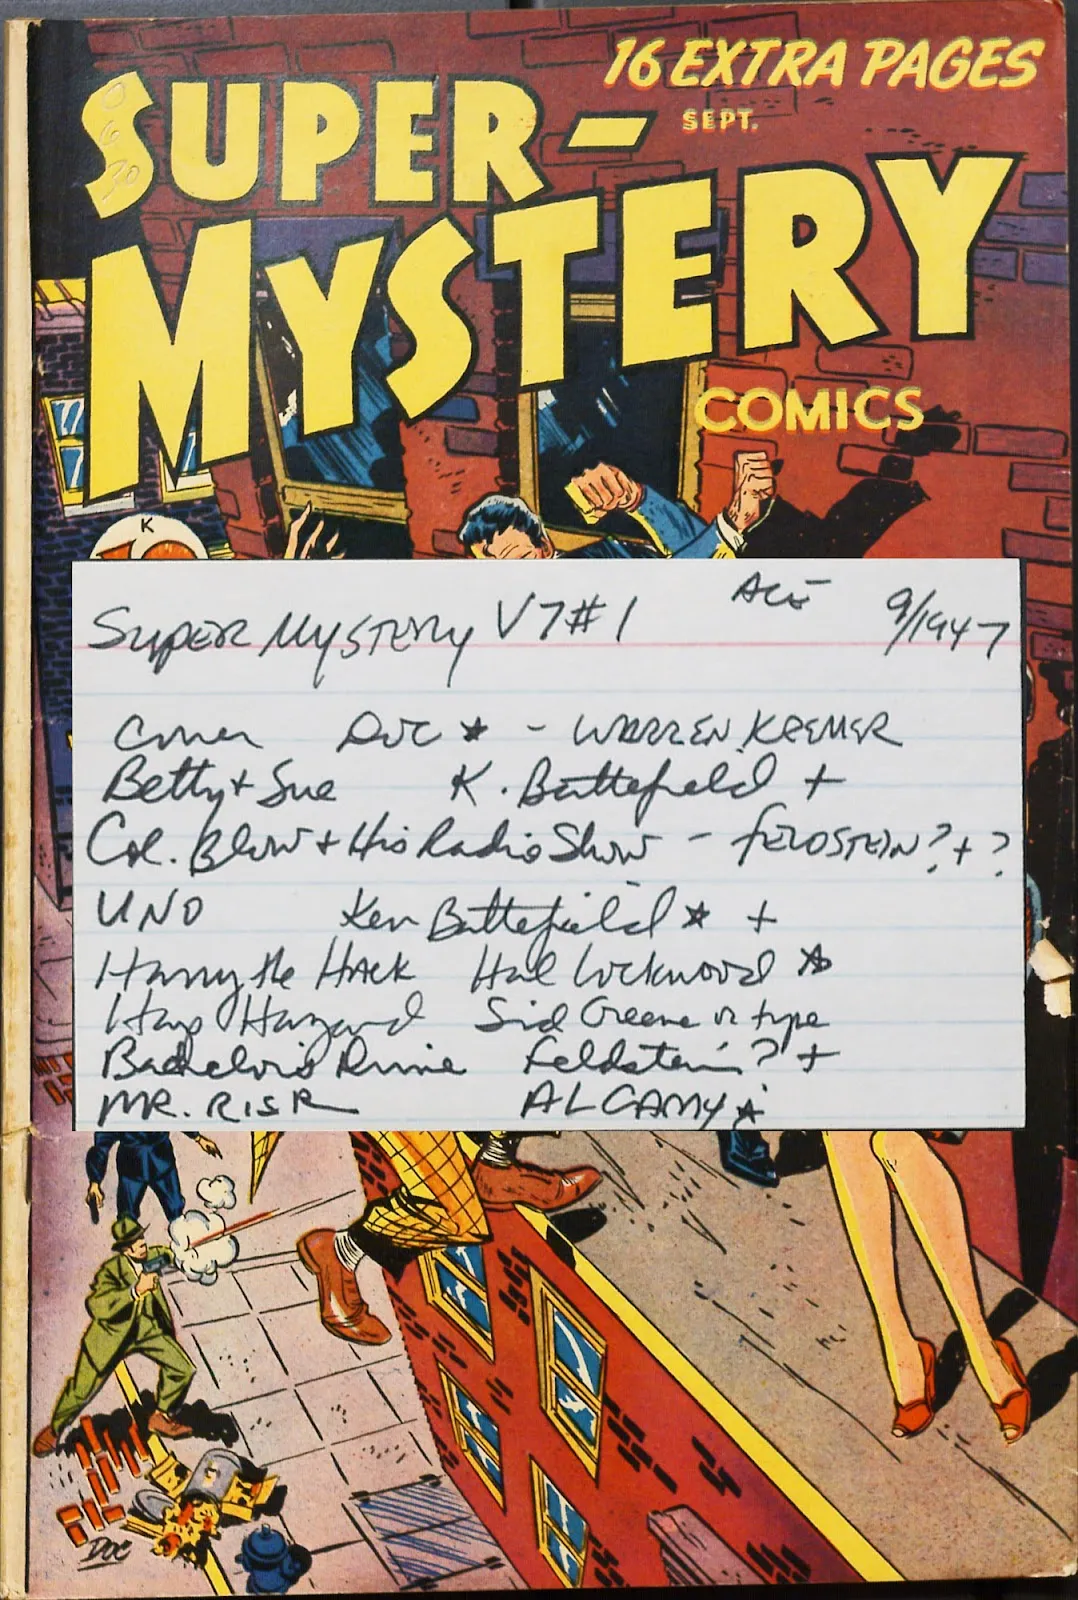 16 EXTRA PAGES
SEPT.
SUPER-
MYSTERY
COMICS
K
10
Super Mystery V7#1 Ace 9/1947
Cover Doc ★ - WARREN KREMER
Betty + Sue K. Battefield +
Col. Blow + His Radio Show - FELDSTEIN? + ?
UNO Ken Battefield ★ +
Harry the Hack Hal Lockwood ★
Hap Hazard Sid Greene or type
Bachelor's Dime Feldstein? +
MR. RISK AL CAMY ★
DOC